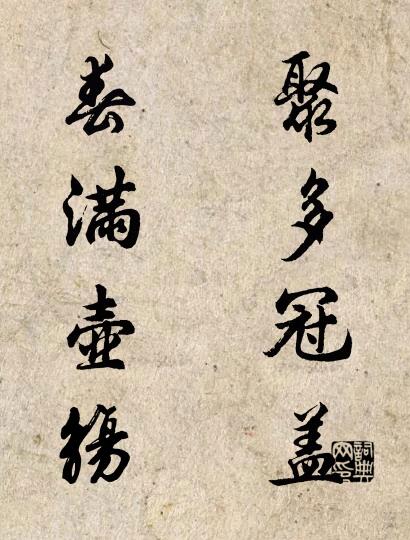 聚多冠盖
春满壶觞
詞典网印